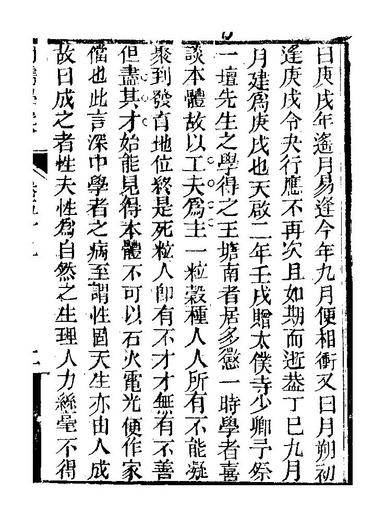 日庚戌年遙月易逢今年九月便相衝又曰月朔初
逢庚戌令夬行應不再次且如期而逝葢丁巳九月
月建爲庚戌也天啟二年壬戌贈太僕寺少卿予祭
一壇先生之學得之王塘南者居多懲一時學者喜
談本體故以工夫爲主一粒穀種人人所有不能凝
聚到發育地位終是死粒人卽有不才才無有不善
但盡其才始能見得本體不可以石火電光便作家
儅也此言深中學者之病至謂性固天生亦由人成
故曰成之者性夫性爲自然之生理人力絲毫不得